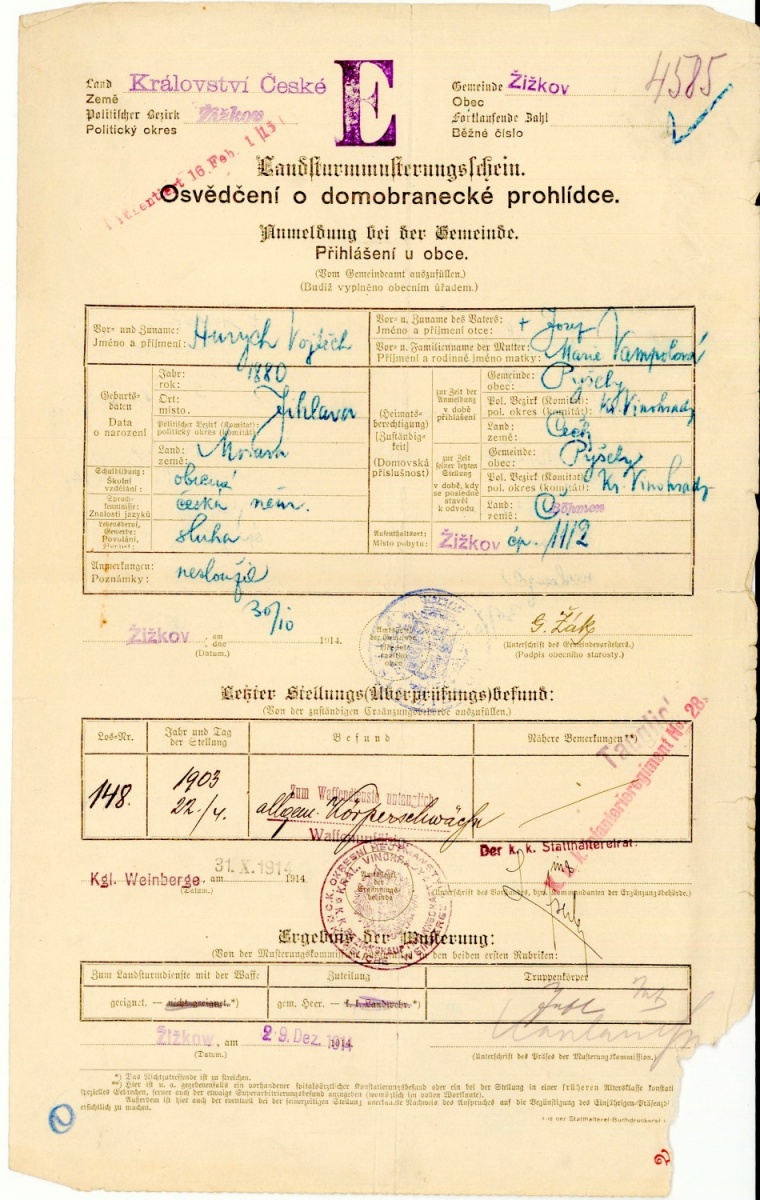 Land Království České
Země
Politischer Bezirk Žižkov
Politický okres
E
Gemeinde Žižkov
Obec
Fortlaufende Zahl
Běžné číslo
4585
Präsentiert 16. Feb. 1915
Landsturmmusterungsschein.
Osvědčení o domobranecké prohlídce.
Anmeldung bei der Gemeinde.
Přihlášení u obce.
(Vom Gemeindeamt auszufüllen.)
(Budiž vyplněno obecním úřadem.)
Vor- und Zuname:
Jméno a příjmení: Hurych Vojtěch
Vor- u. Zuname des Vaters:
Jméno a příjmení otce: + Josef
Vor- u. Familienname der Mutter:
Příjmení a rodinné jméno matky: Marie Vampolová
Geburtsdaten
Data o narození
Jahr:
rok: 1880
Ort:
místo. Jihlava
Politischer Bezirk (Komitat):
politický okres (komitát):
Land:
země: Morava
Schulbildung:
Školní vzdělání: obecná
Sprachkenntnisse:
Znalosti jazyků česká, něm.
Lebensberuf, Gewerbe:
Povolání, sluha
(Heimatsberechtigung)
[Zuständigkeit]
(Domovská příslušnost)
zur Zeit der Anmeldung
v době přihlášení
Gemeinde:
obec: Pyšely
Pol. Bezirk (Komitat):
pol. okres (komitát): Kr. Vinohrady
Land:
země: Čechy
zur Zeit seiner letzten Stellung
v době, kdy se posledně stavěl k odvodu
Gemeinde:
obec: Pyšely
Pol. Bezirk (Komitat):
pol. okres (komitát): Kr. Vinohrady
Land:
země: Böhmen
Aufenthaltsort:
Místo pobytu: Žižkov čp. 1112
Anmerkungen:
Poznámky: nesloužil
Žižkov am
dne 30/10 1914.
(Datum.)
G. Žák
(Unterschrift des Gemeindevorstehers.)
(Podpis obecního starosty.)
Letzter Stellungs(Überprüfungs)befund:
(Von der zuständigen Ergänzungsbehörde auszufüllen.)
Los-Nr.
Jahr und Tag der Stellung
Befund
Nähere Bemerkungen **)
148.
1903
22./4.
Zum Waffendienste untauglich
allgem. Körperschwäche
Tauglich
k. u. k. Infanterieregiment No. 28.
Der k. k. Statthaltereirat:
Kgl. Weinberge 31. X. 1914 1914
(Datum.)
Amtssiegel der Ergänzungsbehörde
(Unterschrift des Vorstandes, bzw. Kommandanten der Ergänzungsbehörde.)
Ergebnis der Musterung:
(Von der Musterungskommission auszufüllen in den beiden ersten Rubriken:
Zum Landsturmdienste mit der Waffe
Zuteilung
Truppenkörper
geeignet. — nicht geeignet.*)
gem. Heer. — k. k. Landwehr.*)
Žižkow, am 29. Dez. 1914
(Datum.)
(Unterschrift des Präses der Musterungskommission.)
*) Das Nichtzutreffende ist zu streichen.
**) Hier ist u. a. gegebenenfalls ein vorhandener spitalsärztlicher Konstatierungsbefund oder ein bei der Stellung in einer früheren Altersklasse konstati
spezielles Gebrechen, ferner auch der etwaige Superarbitrierungsbefund anzugeben (womöglich im vollen Wortlaute).
Außerdem ist hier auch der eventuell bei der seinerzeitigen Stellung anerkannte Nachweis des Anspruches auf die Begünstigung des Einjährigen-Präsenzd
ersichtlich zu machen.
aus der Statthalterei-Buchdruckerei
2